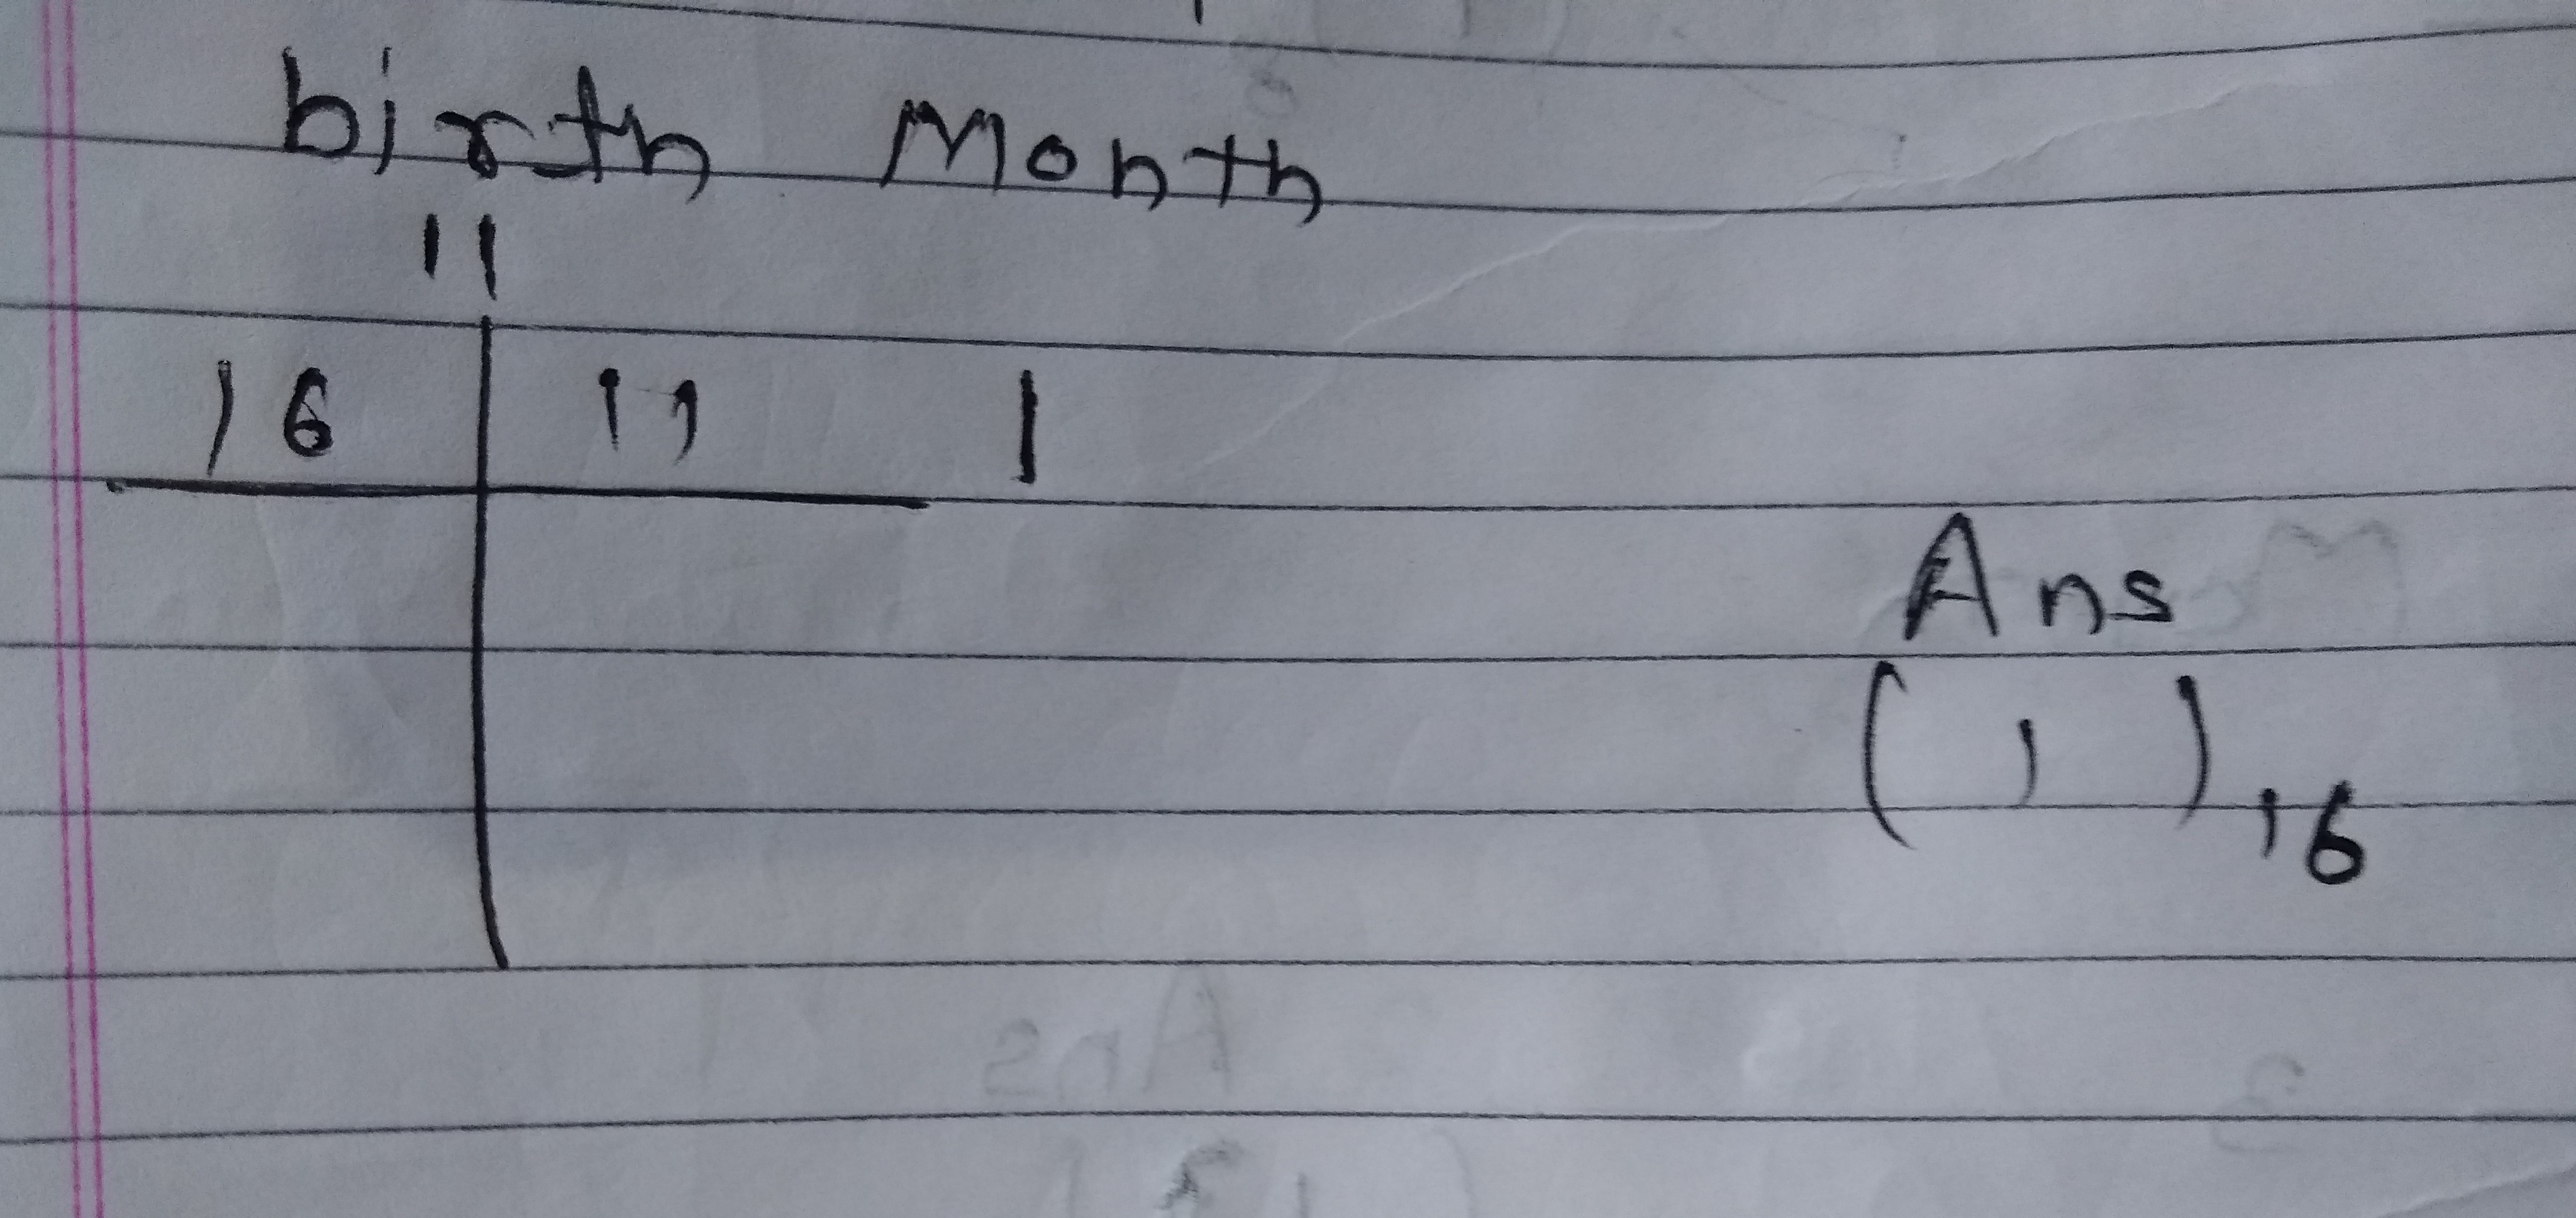 birth Month
11
16 11 1
Ans
(1)16